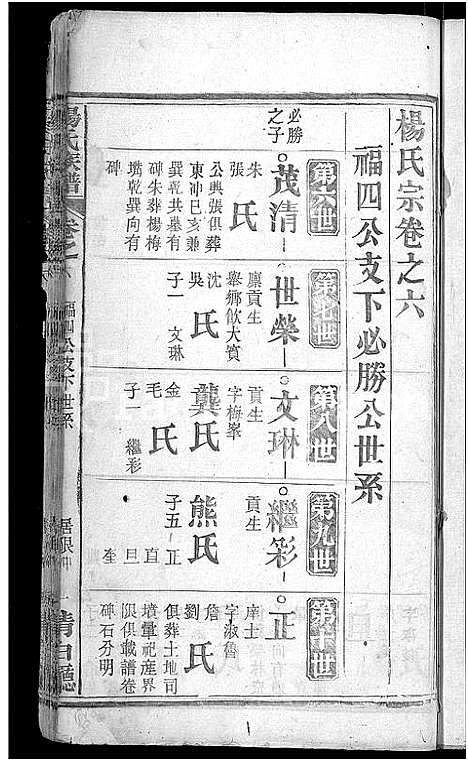 楊氏宗卷之六
福四公支下必勝公世系
第六世
必勝之子
茂清
朱張氏
公與張俱葬
東冲巳亥兼
巽乾共墓有
碑朱葬楊梅
巽向有
碑
第七世
世榮
廩貢生
舉鄉飲大賓
沈吳氏
子一 文琳
第八世
文琳
貢生
字梅峯
龔氏
金毛氏
子一 繼彩
第九世
繼彩
貢生
熊氏
子五 正
直
旦
奎
第十世
正
庠士
字淑魯
詹劉氏
俱葬土地司
墳葷祀產界
限俱載譜卷
碑石分明
楊氏族譜
卷之六
福四公支下世系
一
清白